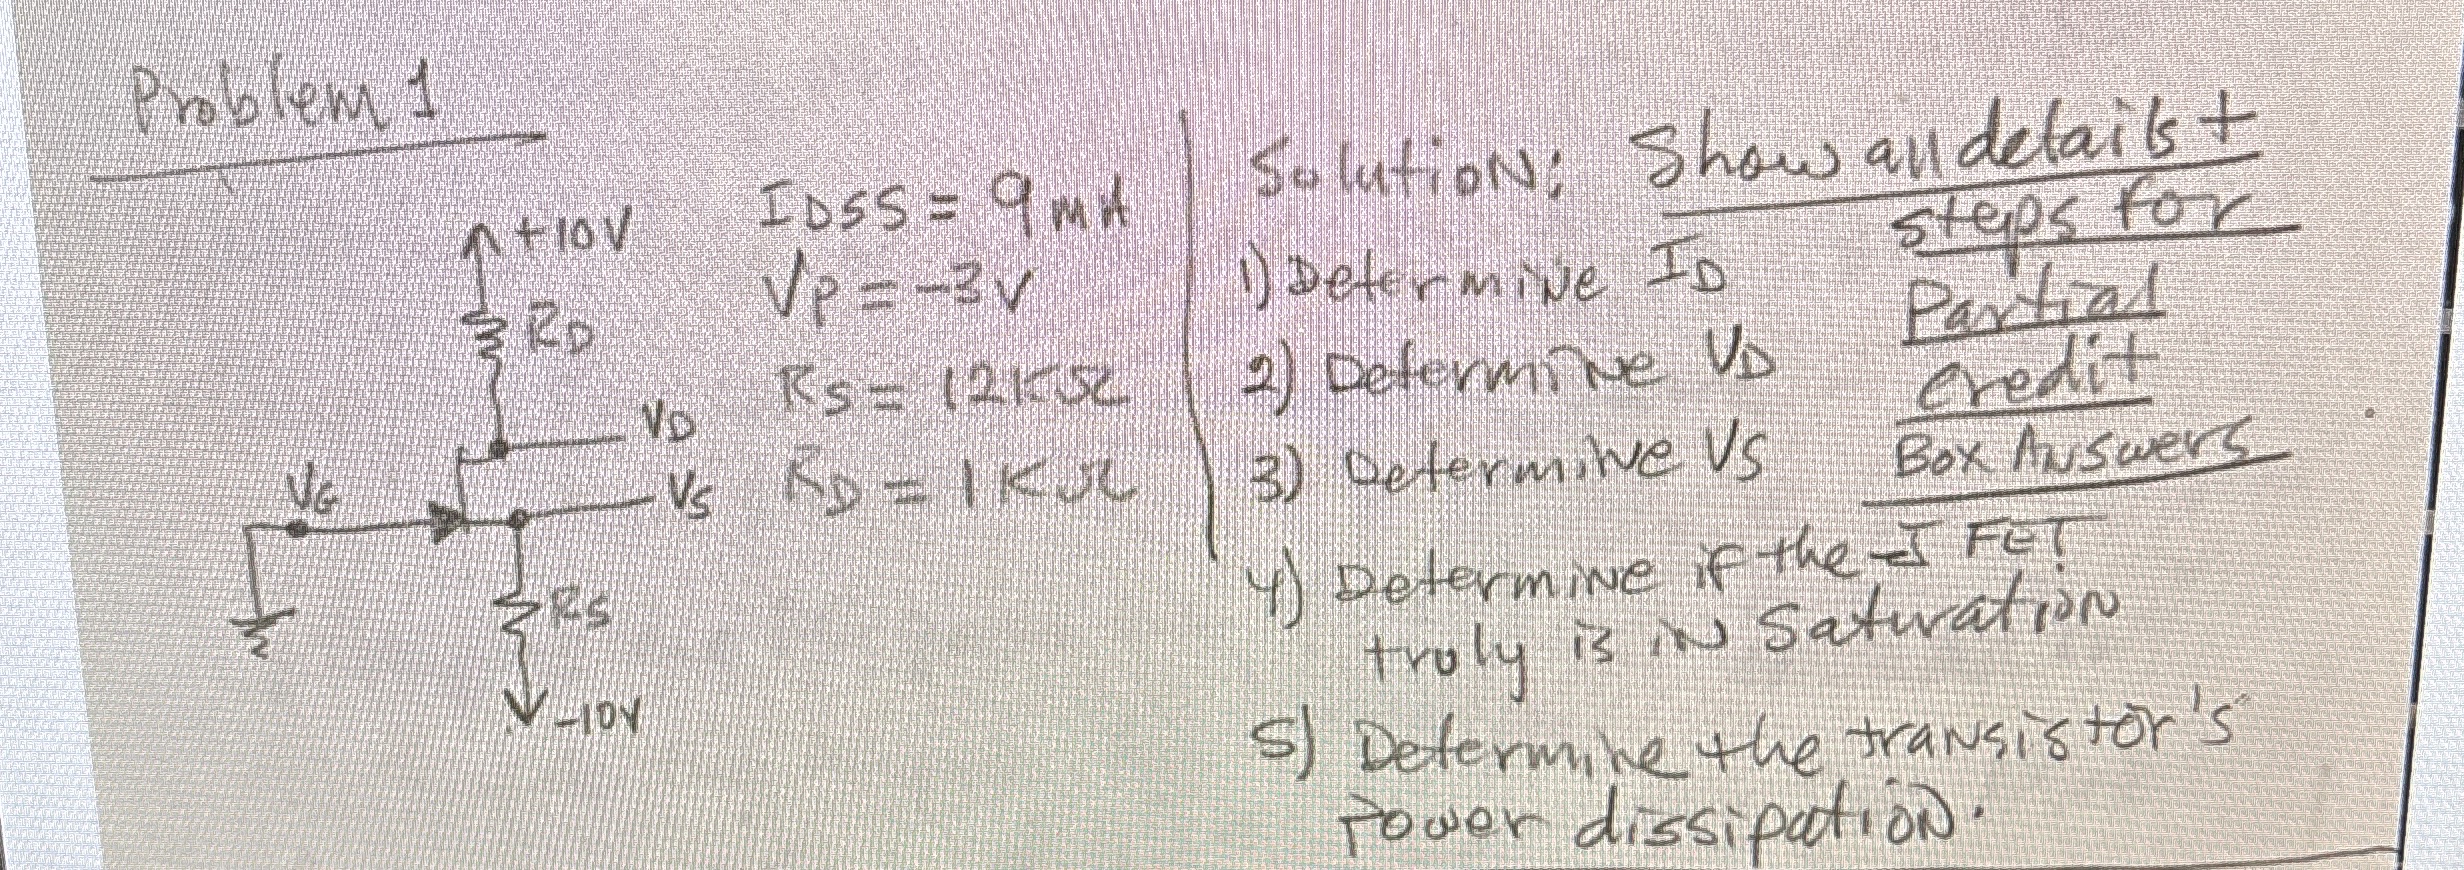 Problem 1
+10V
RD
VD
VG
VS
RS
-10V
IDSS = 9mA
VP = -3V
RS = 12KΩ
RD = 1KΩ
Solution: Show all details +
steps for
Partial
credit
Box Answers
1) Determine ID
2) Determine VD
3) Determine VS
4) Determine if the JFET
truly is in Saturation
5) Determine the transistor's
Power dissipation.